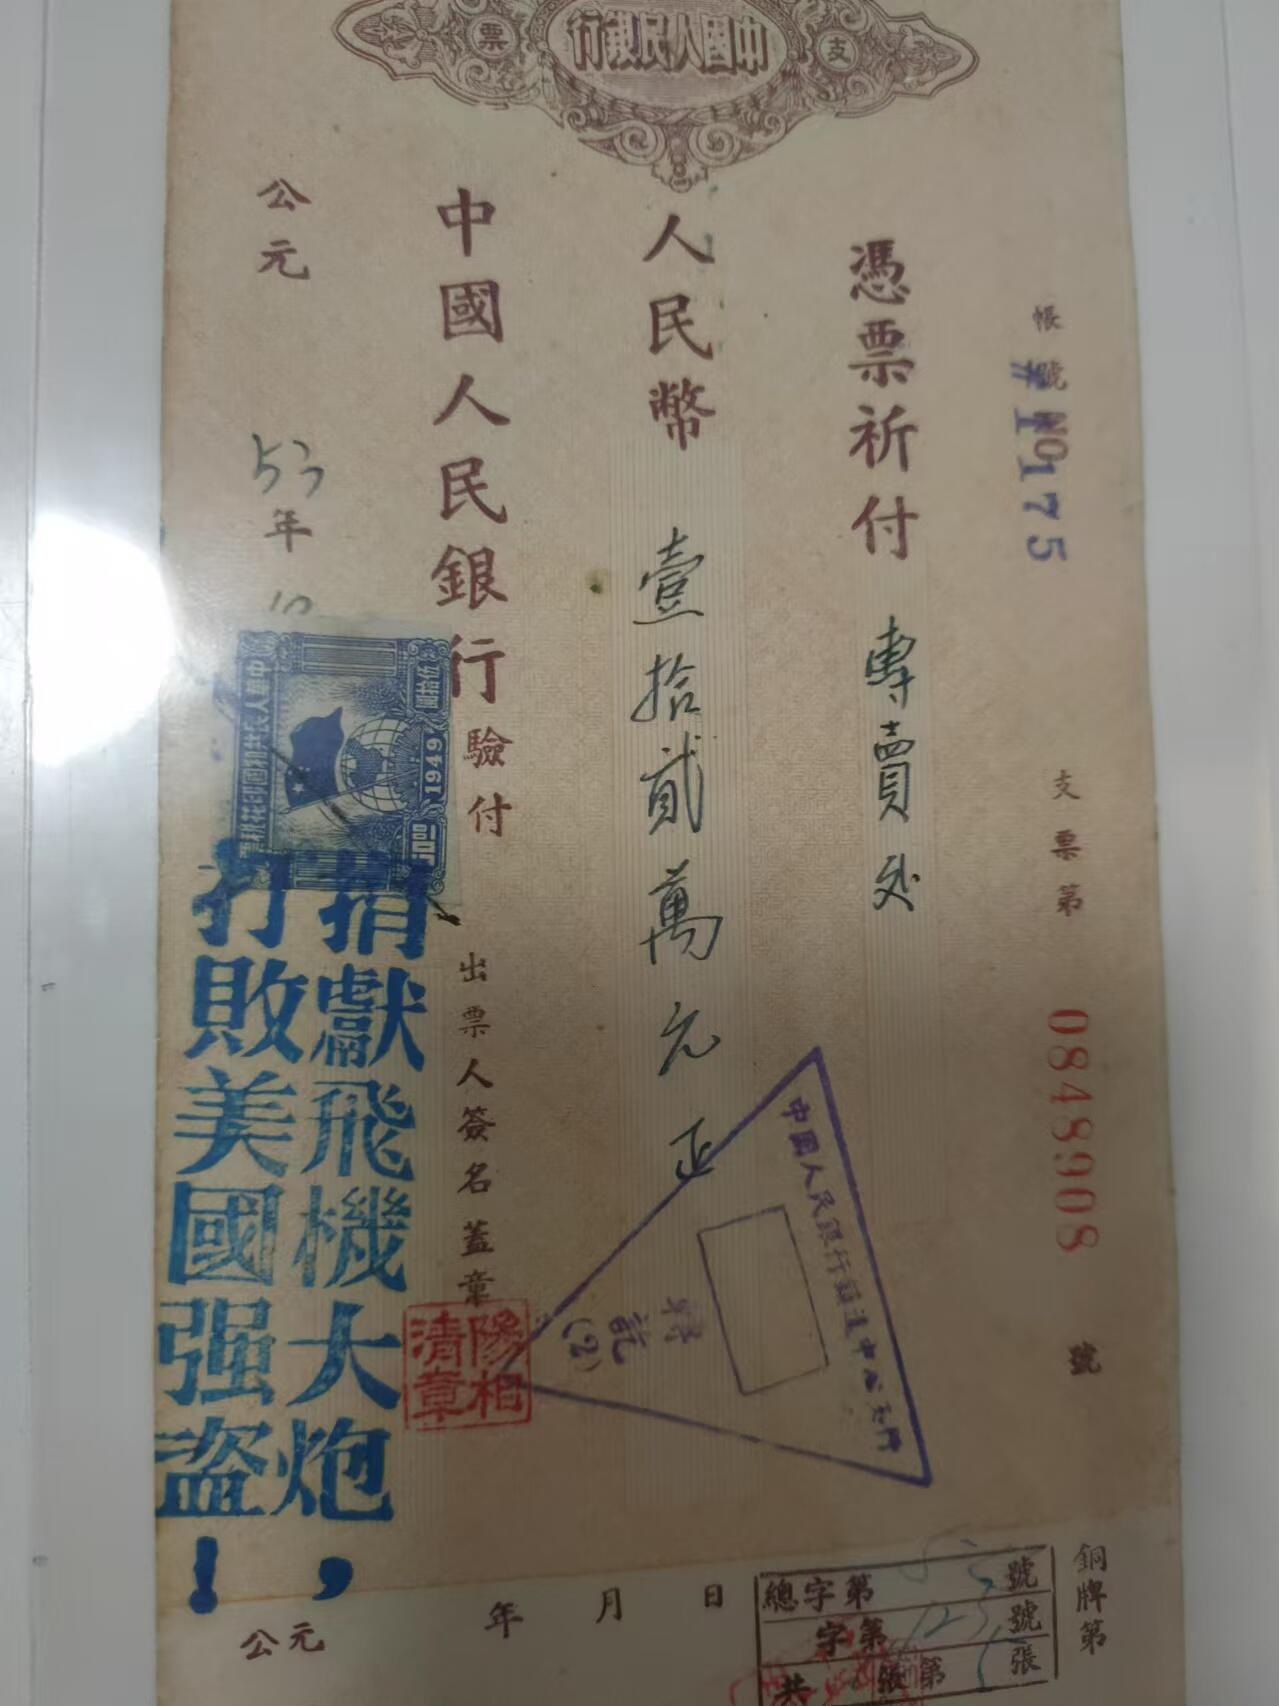 中國人民銀行
支票
帳號 NO
#1175
支票第 0848908 號
憑票祈付 專賣处
人民幣 壹拾貳萬元正
中國人民銀行驗付
出票人簽名蓋章
公元 53年
中華人民共和國印花稅票
伍拾圓
1949
50
捐獻飛機大炮，
打敗美國强盜！
陽相清章
中國人民銀行
(2)
公元 年 月 日
總字第 號
字第 123 號
共 張第 張
銅牌第